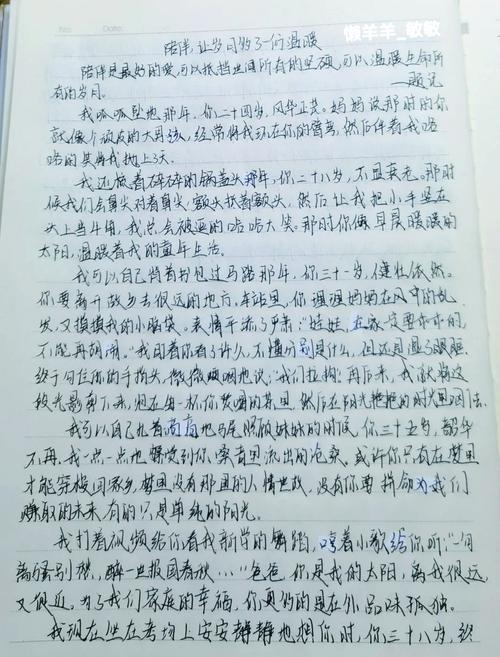 懒羊羊_敏敏
No.
Date.
陪伴,让岁月
温暖
陪伴是最好的爱,可以抵挡世间所有的坚硬,可以温暖生命所
有的岁月。
——题记
我呱呱坠地那年,你二十四岁,风华正茂。妈妈说那时的你
就像个顽皮的大男孩,经常将我环在你的臂弯,然后伴着我咯
咯的笑将我抛上天。
我还梳着碎碎的锅盖头那年,你二十八岁,不显衰老。那时
候我们会鼻尖对着鼻尖,额头抵着额头,然后让我把小手竖在
头上当牛角,我总会被逗的哈哈大笑。那时你像早晨暖暖的
太阳,温暖着我的童年生活。
我可以自己背着书包过马路那年,你三十一岁,健壮依然。
你要离开故乡去很远的地方,车站里,你理理妈妈在风中的乱
发,又摸摸我的小脑袋。表情平添了严肃:“娃娃,在家一定要乖乖的,
不能再胡闹。”我回看你看了许久,不懂分别是什么,但还是湿了眼眶。
终于勾住你的手指头,微微哽咽地说:“我们拉钩”再后来,我就将这
段光影剪下来,泡在每一杯你
的茶里,然后在阳光
的时光里回忆。
我可以自己扎着高高地马尾照顾妹妹的时候,你三十五岁,韶华
不再,我一点一点地
到你
里流出的沧桑。或许你只有在梦里
才能穿梭回家乡,梦里没有那里的人情世故,没有你要拼命为我们
赚取的未来,有的只是单纯的阳光。
我打着视频给你看我新学的舞蹈,哼着小歌给你听:“一曲
离骚别楚,醉一世报国春秋……”爸爸,你是我的太阳,离我很远,
又很近。为了我们家庭的幸福,你真的是在外品味孤独。
我现在坐在考场上安安静静地想你时,你三十八岁,终